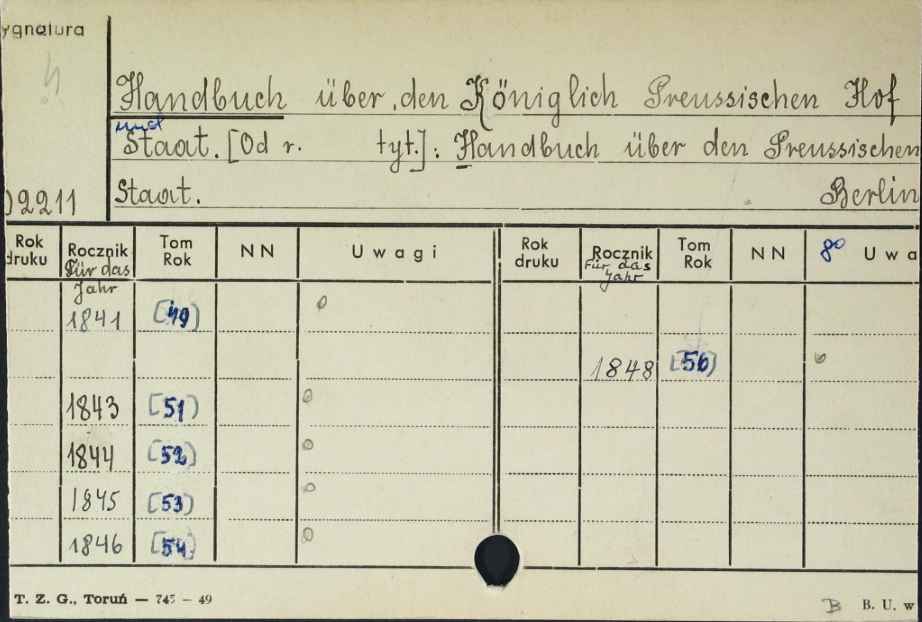 ygnatura
Handbuch über den Königlich Preussischen Hof
und
Staat. [Od r. tyt.]: Handbuch über den Preussischen
Staat. Berlin
02211
Rok druku Rocznik Für das Jahr Tom Rok NN Uwagi Rok druku Rocznik Für das Jahr Tom Rok NN 80 Uwa
1841 [49]
1848 [56]
1843 [51]
1844 [52]
1845 [53]
1846 [54]
T. Z. G., Toruń — 745 — 49 B B. U. w